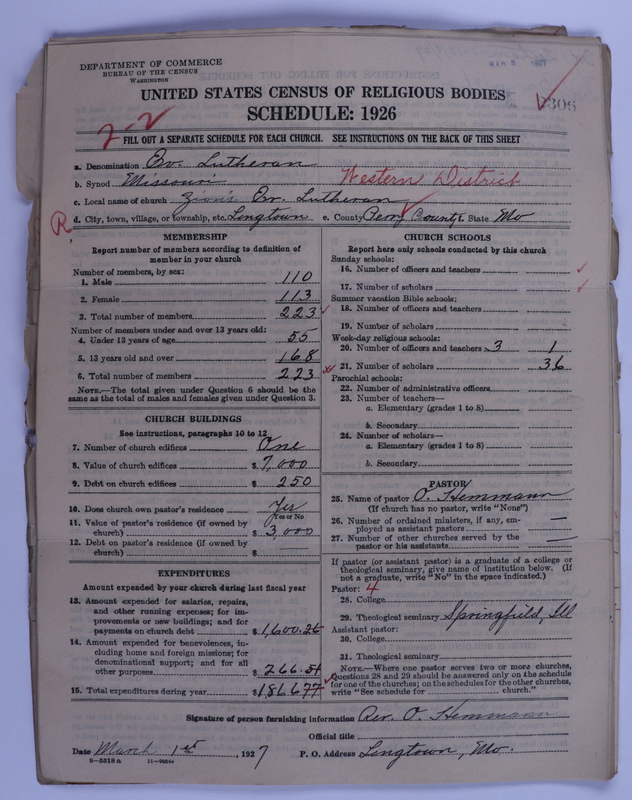 DEPARTMENT OF COMMERCE
BUREAU OF THE CENSUS
WASHINGTON
UNITED STATES CENSUS OF RELIGIOUS BODIES
SCHEDULE: 1926
2-2
FILL OUT A SEPARATE SCHEDULE FOR EACH CHURCH. SEE INSTRUCTIONS ON THE BACK OF THIS SHEET
a. Denomination Ev. Lutheran
b. Synod Missouri Western District
c. Local name of church Zion's Ev. Lutheran
R d. City, town, village, or township, etc. Longtown e. County Perry County f. State Mo
MEMBERSHIP
Report number of members according to definition of
member in your church
Number of members, by sex:
1. Male 110
2. Female 113
3. Total number of members 223
Number of members under and over 13 years old:
4. Under 13 years of age 55
5. 13 years old and over 168
6. Total number of members 223
NOTE.—The total given under Question 6 should be the
same as the total of males and females given under Question 3.
CHURCH BUILDINGS
See instructions, paragraphs 10 to 12
7. Number of church edifices One
8. Value of church edifices $ 7,000
9. Debt on church edifices $ 250
10. Does church own pastor's residence Yes
Yes or No
11. Value of pastor's residence (if owned by
church) $ 3,000
12. Debt on pastor's residence (if owned by
church) $
EXPENDITURES
Amount expended by your church during last fiscal year
13. Amount expended for salaries, repairs,
and other running expenses; for im-
provements or new buildings; and for
payments on church debt $ 1,600.26
14. Amount expended for benevolences, in-
cluding home and foreign missions; for
denominational support; and for all
other purposes $ 266.51
15. Total expenditures during year $ 1866 77
CHURCH SCHOOLS
Report here only schools conducted by this church
Sunday schools:
16. Number of officers and teachers
17. Number of scholars
Summer vacation Bible schools:
18. Number of officers and teachers
19. Number of scholars
Week-day religious schools:
20. Number of officers and teachers 3 1
21. Number of scholars 36
Parochial schools:
22. Number of administrative officers
23. Number of teachers—
a. Elementary (grades 1 to 8)
b. Secondary
24. Number of scholars—
a. Elementary (grades 1 to 8)
b. Secondary
PASTOR
25. Name of pastor O. Hemmann
(If church has no pastor, write "None")
26. Number of ordained ministers, if any, em-
ployed as assistant pastors —
27. Number of other churches served by the
pastor or his assistants —
If pastor (or assistant pastor) is a graduate of a college or
theological seminary, give name of institution below. (If
not a graduate, write "No" in the space indicated.)
Pastor: 4
28. College
29. Theological seminary Springfield, Ill
Assistant pastor:
30. College
31. Theological seminary
NOTE.—Where one pastor serves two or more churches,
Questions 28 and 29 should be answered only on the schedule
for one of the churches; on the schedules for the other churches,
write "See schedule for church."
Signature of person furnishing information Rev. O. Hemmann
Official title
Date March 1st, 1927 P. O. Address Longtown, Mo.
8-5318a 11-9954a